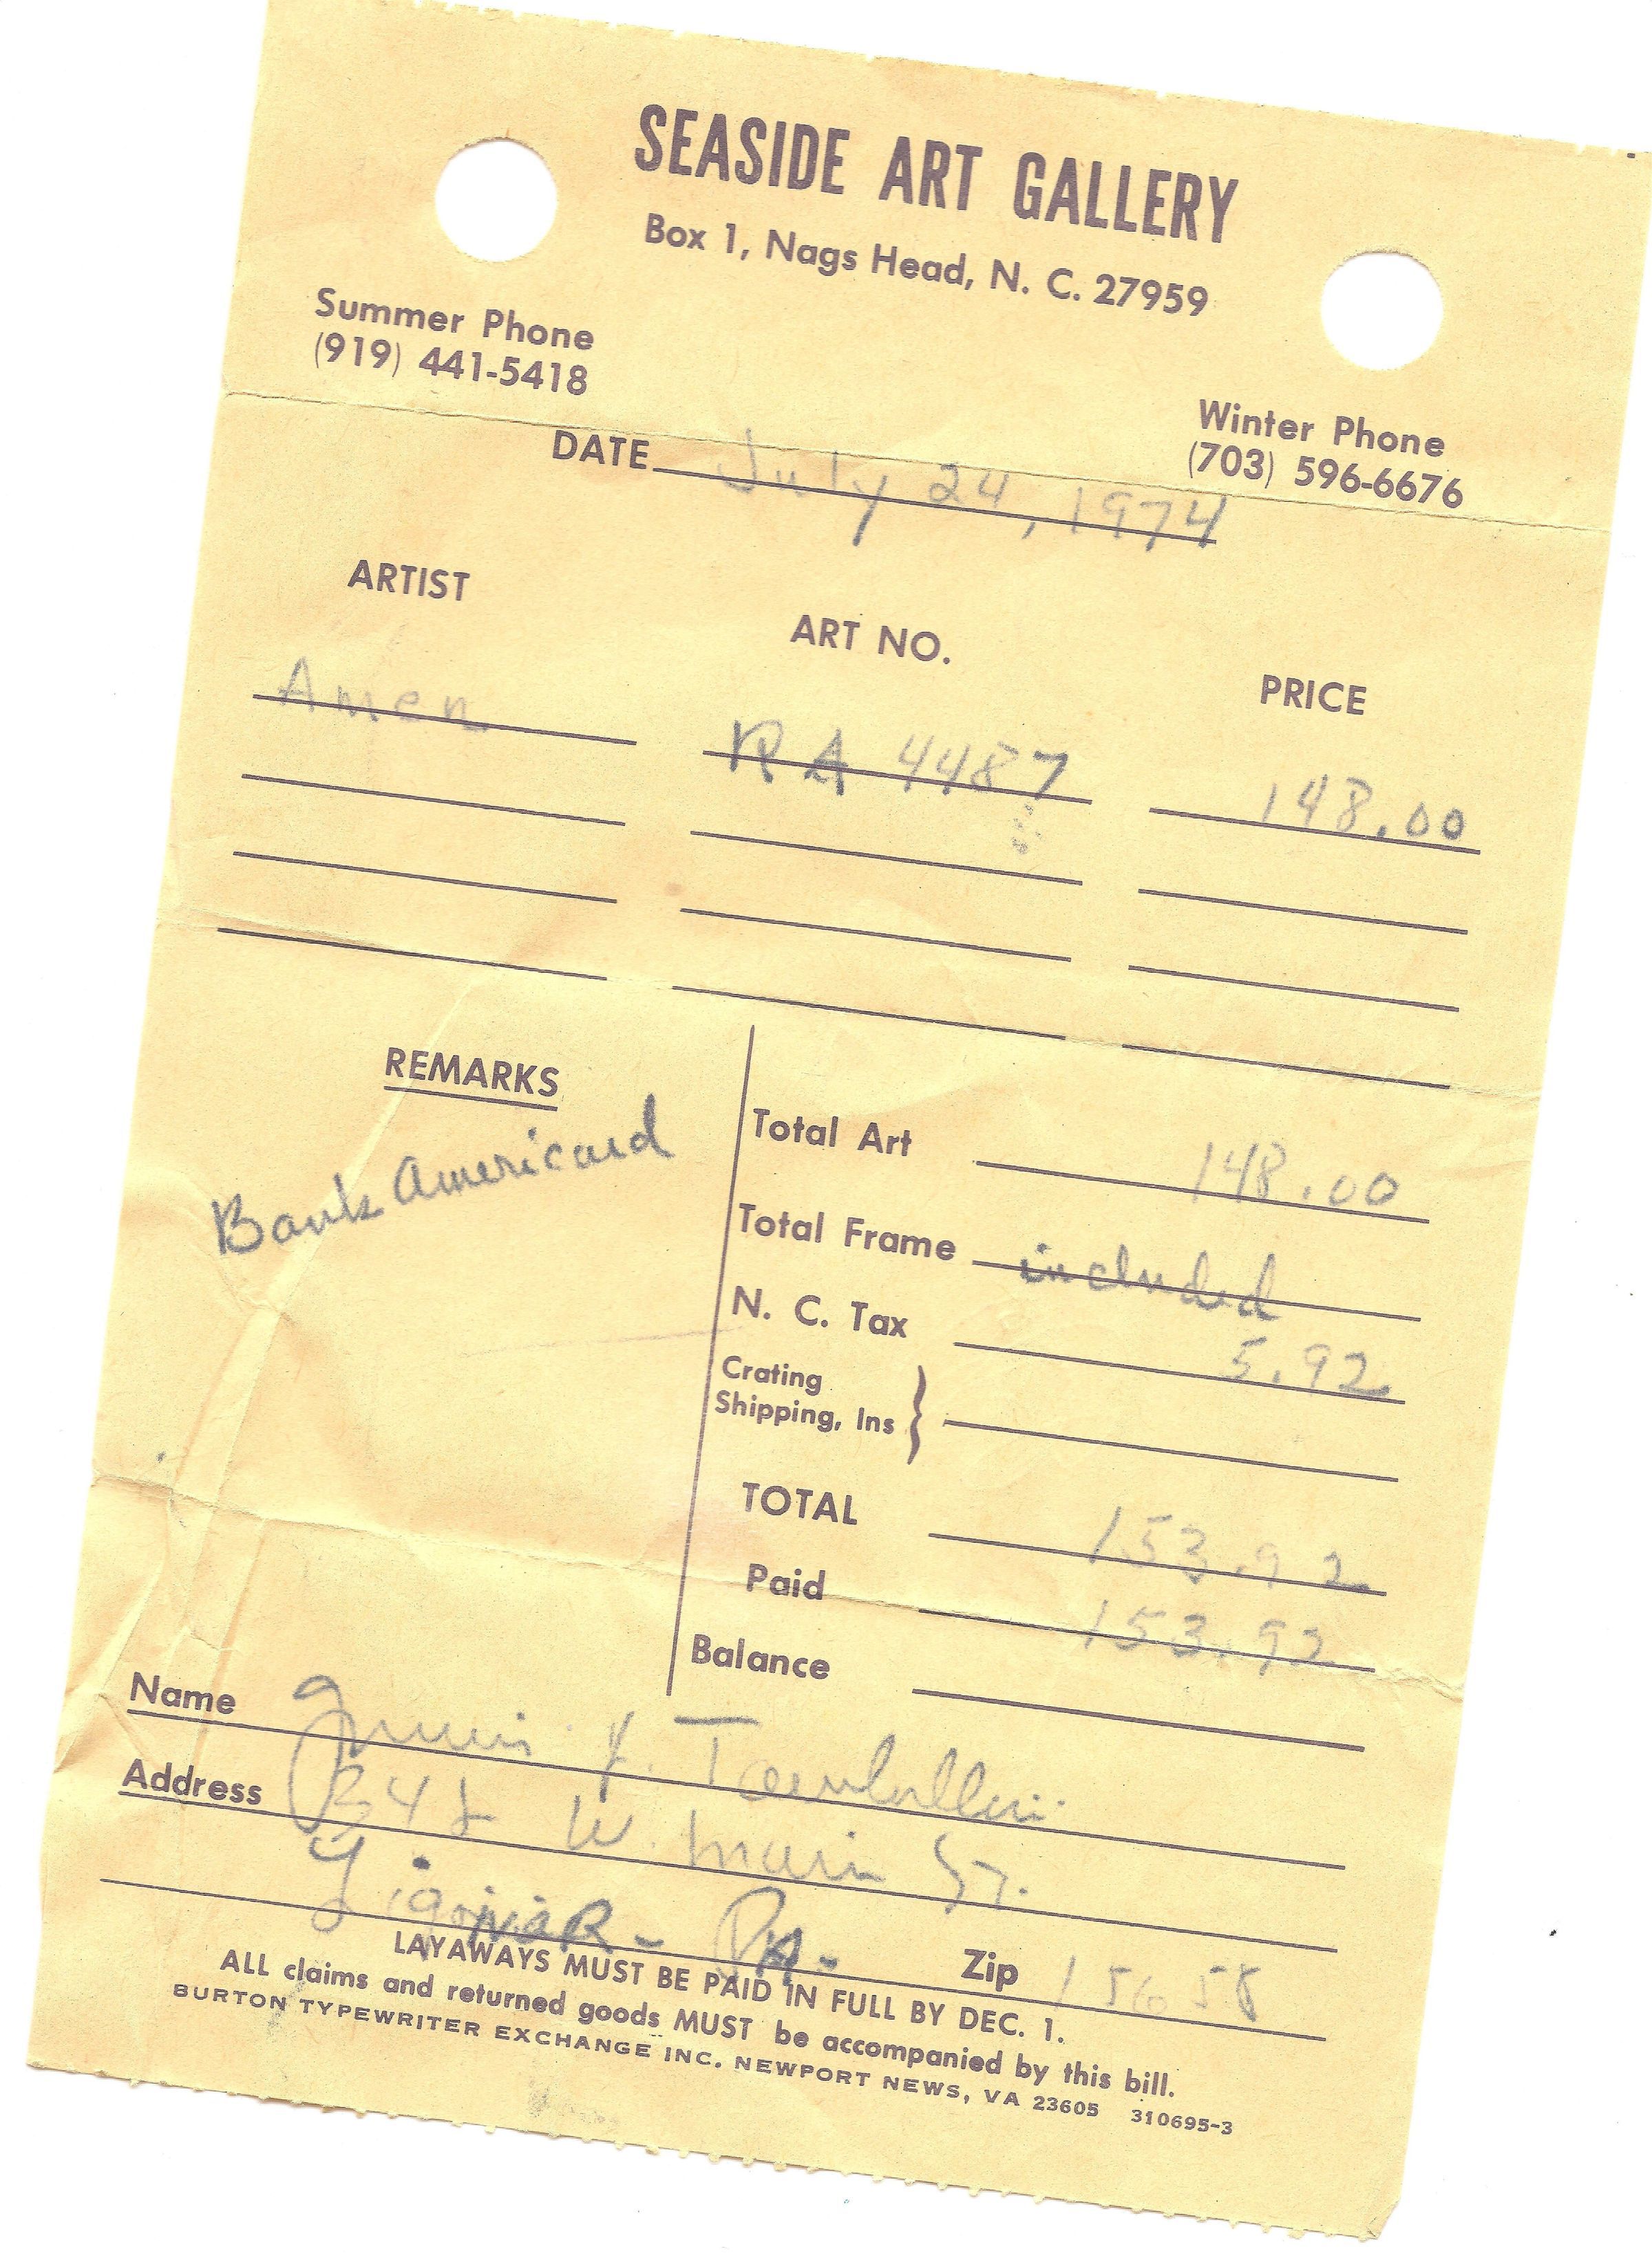 SEASIDE ART GALLERY
Box 1, Nags Head, N. C. 27959
Summer Phone
(919) 441-5418
Winter Phone
(703) 596-6676
DATE July 24, 1974
ARTIST ART NO. PRICE
Amen RA 4487 148.00
REMARKS
Bank Americard
Total Art 148.00
Total Frame included
N. C. Tax 5.92
Crating
Shipping, Ins }
TOTAL 153.92
Paid 153.92
Balance
Name
Address W. Main St.
Ligonier - PA - Zip 15658
LAYAWAYS MUST BE PAID IN FULL BY DEC. 1.
ALL claims and returned goods MUST be accompanied by this bill.
BURTON TYPEWRITER EXCHANGE INC. NEWPORT NEWS, VA 23605 310695-3